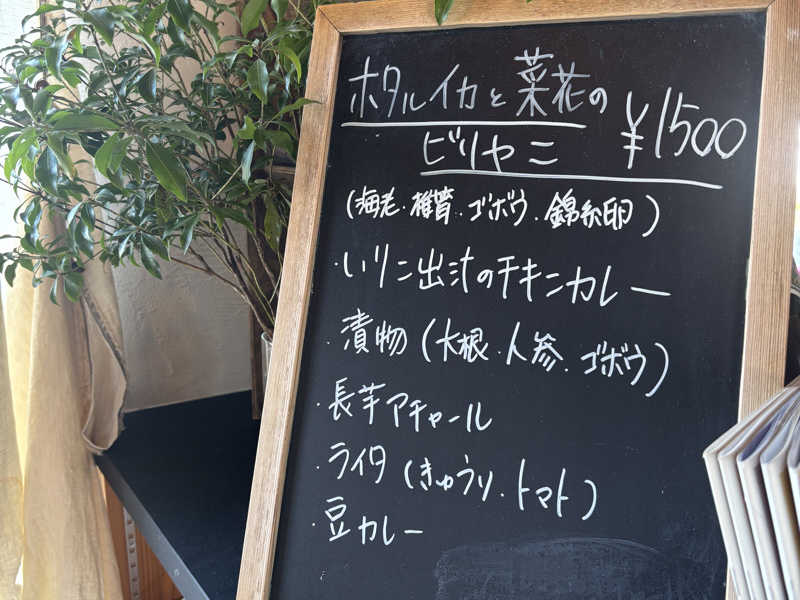 ホタルイカと菜花の
ビリヤニ ¥1500
(海老・椎茸・ゴボウ・錦糸卵)
・いりこ出汁のチキンカレー
・漬物(大根・人参・ゴボウ)
・長芋アチャール
・ライタ(きゅうり・トマト)
・豆カレー